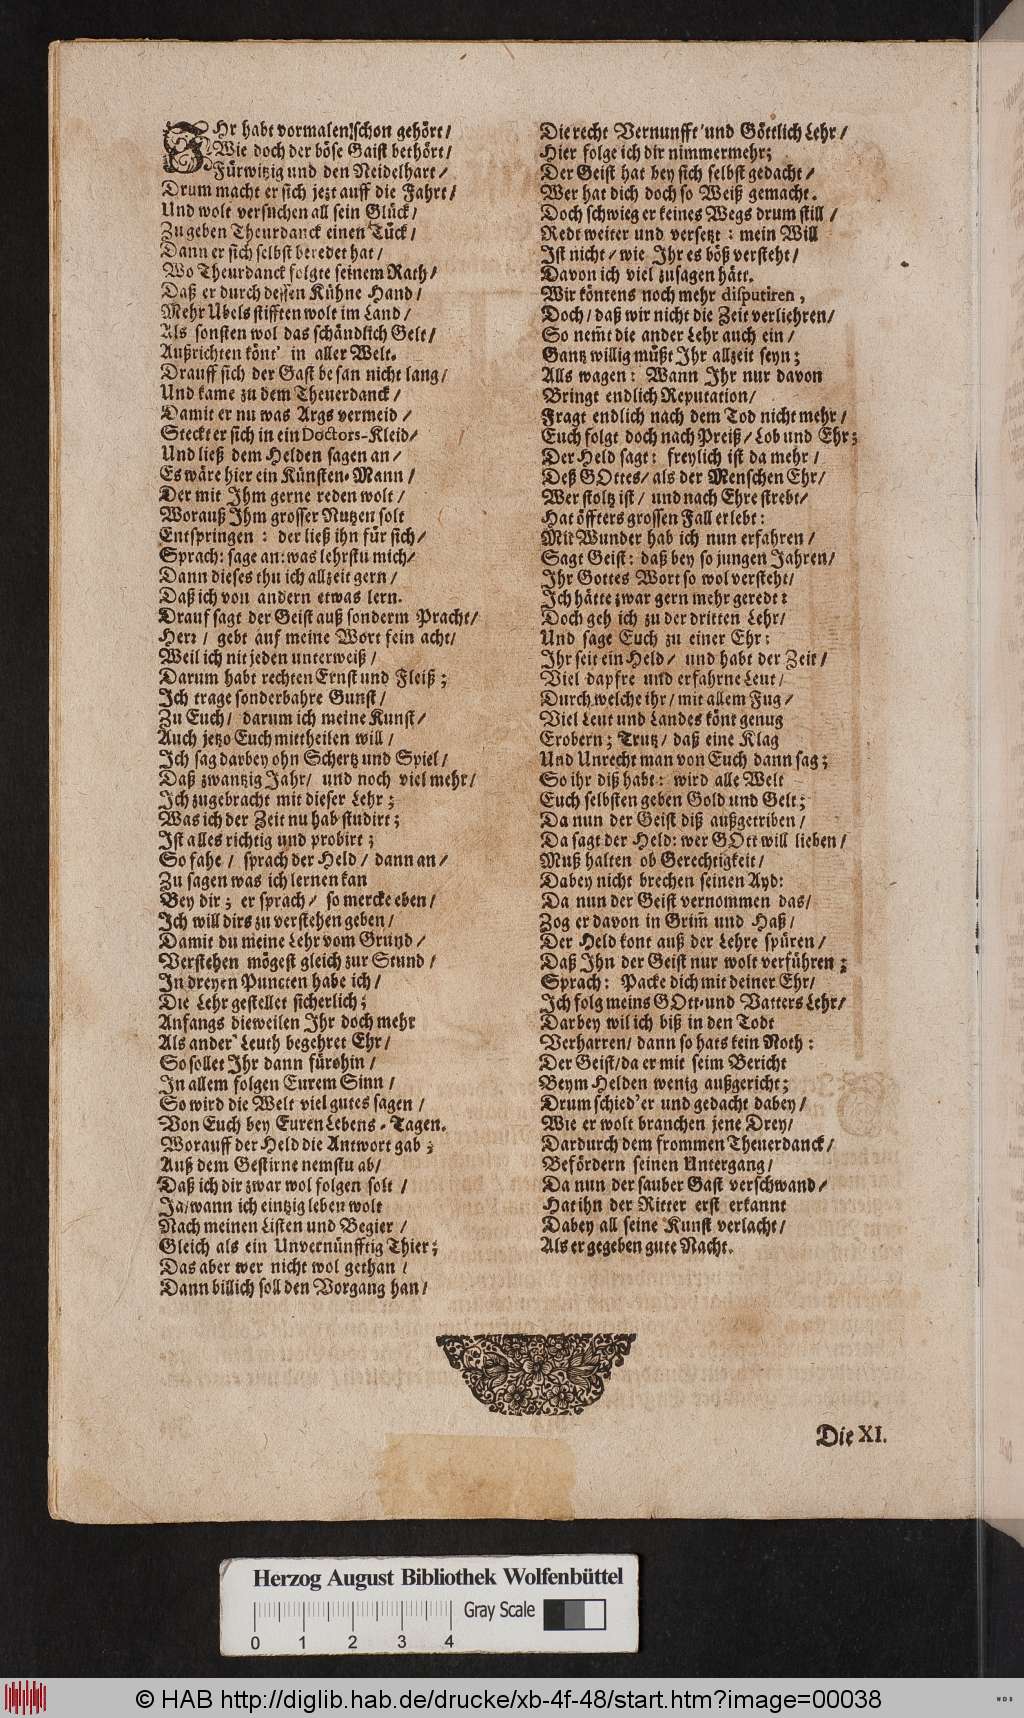 IHr habt vormalen schon gehört/
Wie doch der böse Gaist bethört/
Fürwitzig und den Neidelhart/
Drum macht er sich jezt auff die Fahrt/
Und wolt versuchen all sein Glück/
Zu geben Theurdanck einen Tück/
Dann er sich selbst beredet hat/
Wo Theurdanck folgte seinem Rath/
Daß er durch dessen Kühne Hand/
Mehr Ubels stifften wolt im Land/
Als sonsten wol das schändlich Gelt/
Außrichten könt' in aller Welt.
Drauff sich der Gast besan nicht lang/
Und kame zu dem Theuerdanck/
Damit er nu was Args vermeid/
Steckt er sich in ein Doctors-Kleid/
Und ließ dem Helden sagen an/
Es wäre hier ein Künsten-Mann/
Der mit Ihm gerne reden wolt/
Worauß Ihm grosser Nutzen solt
Entspringen: der ließ ihn für sich/
Sprach: sage an: was lehrstu mich/
Dann dieses thu ich allzeit gern/
Daß ich von andern etwas lern.
Drauf sagt der Geist auß sonderm Pracht/
Herr/ gebt auf meine Wort fein acht/
Weil ich nit jeden unterweiß/
Darum habt rechten Ernst und Fleiß;
Ich trage sonderbahre Gunst/
Zu Euch/ darum ich meine Kunst/
Auch jetzo Euch mittheilen will/
Ich sag darbey ohn Schertz und Spiel/
Daß zwantzig Jahr/ und noch viel mehr/
Ich zugebracht mit dieser Lehr;
Was ich der Zeit nu hab studirt;
Ist alles richtig und probirt;
So fahe/ sprach der Held/ dann an/
Zu sagen was ich lernen kan
Bey dir; er sprach/ so mercke eben/
Ich will dirs zu verstehen geben/
Damit du meine Lehr vom Grund/
Verstehen mögest gleich zur Stund/
In dreyen Puncten habe ich/
Die Lehr gestellet sicherlich;
Anfangs dieweilen Ihr doch mehr
Als ander' Leuth begehret Ehr/
So sollet Ihr dann fürohin/
In allem folgen Eurem Sinn/
So wird die Welt viel gutes sagen/
Von Euch bey Euren Lebens-Tagen.
Worauff der Held die Antwort gab;
Auß dem Gestirne nemstu ab/
Daß ich dir zwar wol folgen solt/
Ja/ wann ich eintzig leben wolt
Nach meinen Listen und Begier/
Gleich als ein Unvernünfftig Thier;
Das aber wer nicht wol gethan/
Dann billich soll den Vorgang han/
Die recht Vernunfft und Göttlich Lehr/
Hier folge ich dir nimmermehr;
Der Geist hat bey sich selbst gedacht/
Wer hat dich doch so Weiß gemacht.
Doch schwieg er keines Wegs drum still/
Redt weiter und versetzt: mein Will
Ist nicht/ wie Ihr es böß versteht/
Davon ich viel zusagen hätt.
Wir köntens noch mehr disputiren,
Doch/ daß wir nicht die Zeit verliehren/
So nem̃t die ander Lehr auch ein/
Gantz willig müßt Ihr allzeit seyn;
Alls wagen: Wann Ihr nur davon
Bringt endlich Reputation/
Fragt endlich nach dem Tod nicht mehr/
Euch folgt doch nach Preiß/ Lob und Ehr;
Der Held sagt: freylich ist da mehr/
Deß GOttes/ als der Menschen Ehr/
Wer stoltz ist/ und nach Ehre strebt/
Hat öffters grossen Fall erlebt:
Mit Wunder hab ich nun erfahren/
Sagt Geist: daß bey so jungen Jahren/
Ihr Gottes Wort so wol versteht/
Ich hätte zwar gern mehr geredt:
Doch geh ich zu der dritten Lehr/
Und sage Euch zu einer Ehr:
Ihr seit ein Held/ und habt der Zeit/
Viel dapfre und erfahrne Leut/
Durch welche ihr/ mit allem Fug/
Viel Leut und Landes könt genug
Erobern; Trutz/ daß eine Klag
Und Unrecht man von Euch dann sag;
So ihr diß habt: wird alle Welt
Euch selbsten geben Gold und Gelt;
Da nun der Geist diß außgetriben/
Da sagt der Held: wer GOtt will lieben/
Muß halten ob Gerechtigkeit/
Dabey nicht brechen seinen Ayd:
Da nun der Geist vernommen das/
Zog er davon in Grim̃ und Haß/
Der Held kont auß der Lehre spüren/
Daß Ihn der Geist nur wolt verführen;
Sprach: Packe dich mit deiner Ehr/
Ich folg meins GOtt- und Vatters Lehr/
Darbey wil ich biß in den Todt
Verharren/ dann so hats kein Noth:
Der Geist/ da er mit seim Bericht
Beym Helden wenig außgericht;
Drum schied'er und gedacht dabey/
Wie er wolt branchen jene Drey/
Dardurch dem frommen Theuerdanck/
Befördern seinen Untergang/
Da nun der sauber Gast verschwand/
Hat ihn der Ritter erst erkannt
Dabey all seine Kunst verlacht/
Als er gegeben gute Nacht.
Die XI.
Herzog August Bibliothek Wolfenbüttel
Gray Scale
0 1 2 3 4
© HAB http://diglib.hab.de/drucke/xb-4f-48/start.htm?image=00038